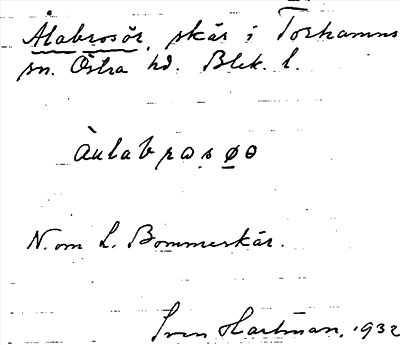 Ålabrosör, skär i Torhamns
sn. Östra hd. Blek. l.
àulabrɷsøɵ
N. om L. Bommerskär.
Sven Hartman, 1932